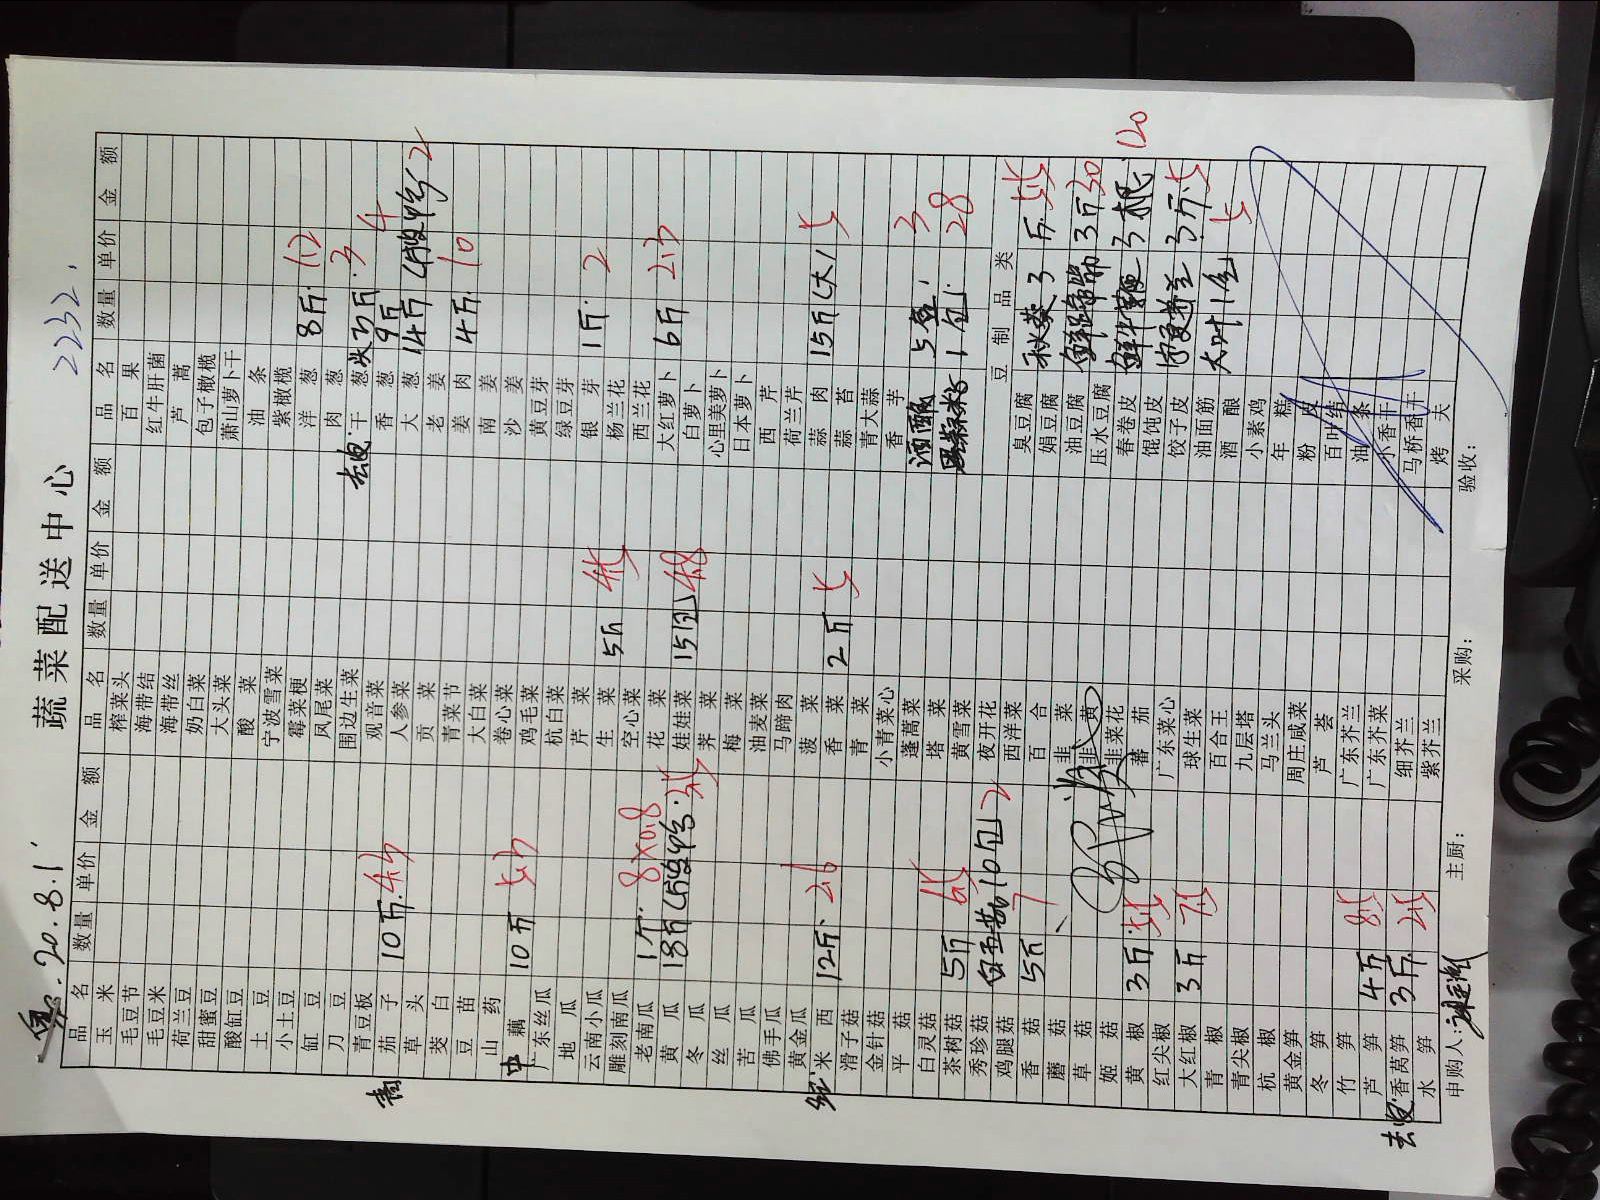 蔬菜配送中心
20.8.1
2232
品名 数量 单价 金额
玉米
毛豆节
毛豆米
荷兰豆
甜蜜豆
酸缸豆
土豆
小土豆
缸豆
刀豆
青豆板
茄子 10斤
草头
茭白
豆苗
山药
中藕 10斤
广东丝瓜
地瓜
云南小瓜
雕刻南瓜
老南瓜 1个 8×0.8
黄瓜 18斤
冬瓜
丝瓜
苦瓜
佛手瓜
黄金瓜
米西 12斤
滑子菇
金针菇
平菇
白灵菇
茶树菇 5斤
秀珍菇 10包 2
鸡腿菇
香菇 5斤 7
蘑菇
草菇
姬菇
黄椒 3斤
红尖椒
大红椒 3斤
青椒
青尖椒
杭椒
黄金笋
冬笋
竹笋
芦笋 4斤
去皮香莴笋 3斤
水笋
品名 数量 单价 金额
榨菜头
海带结
海带丝
奶白菜
大头菜
酸菜
宁波雪菜
霉菜梗
凤尾菜
围边生菜
观音菜
人参菜
贡菜
青菜节
大白菜
卷心菜
鸡毛菜
杭白菜
芹菜
生菜 5斤
空心菜
花菜
娃娃菜 15包 4.8
荠菜
梅菜
油麦菜
马蹄肉
菠菜
香菜 2斤 5
青菜
小青菜心
蓬蒿菜
塔菜
黄雪菜
夜开花
西洋菜
百合
韭菜
韭黄
韭菜花
蕃茄
广东菜心
球生菜
百合王
九层塔
马兰头
周庄咸菜
芦荟
广东芥兰
广东芥菜
细芥兰
紫芥兰
品名 数量 单价 金额
百果
红牛肝菌
芦蒿
包子橄榄
萧山萝卜干
油条
紫橄榄
洋葱 8斤
肉葱
去皮干葱头 3斤 3
香葱 9斤 4
大葱 14斤 2
老姜
姜肉 4斤 10
南姜
沙姜
黄豆芽
绿豆芽
银芽 1斤 2
杨兰花
西兰花
大红萝卜 6斤
白萝卜
心里美萝卜
日本萝卜
西芹
荷兰芹
蒜肉 15斤(大) 5
蒜苔
青大蒜
香芋
酒酿 5盒 3
1包 28
豆制品类
臭豆腐 秋葵 3斤
娟豆腐
油豆腐 3斤 30
压水豆腐
春卷皮 3根 120
馄饨皮
饺子皮 3斤
油面筋
酒酿 大叶1包 5
小素鸡
年糕
粉皮
百叶结
油条
小香干
马桥香干
烤夫
申购人： 主厨： 采购： 验收：